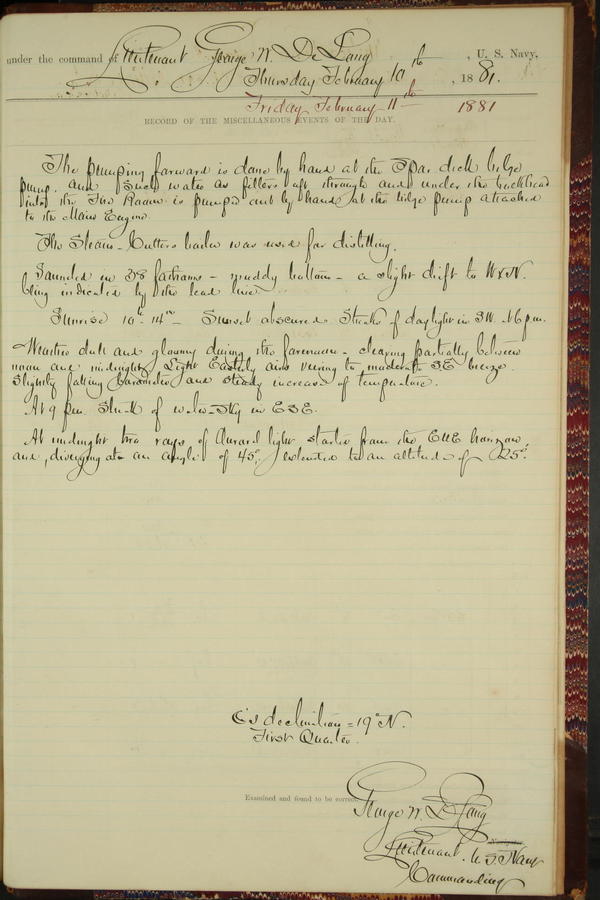 under the command of Lieutenant George W. De Long, U. S. Navy,
Thursday February 10th, 1881.
Friday February 11th 1881
RECORD OF THE MISCELLANEOUS EVENTS OF THE DAY.
The pumping forward is done by hand at the Spar deck bilge
pump, and such water as filters aft through and under the bulkhead
into the Fire Room is pumped out by hand at the bilge pump attached
to the Main Engine.
The Steam-Cutters boiler was used for distilling.
Sounded in 38 fathoms - muddy bottom - a slight drift to WxN.
being indicated by the lead line.
Sunrise 10h 14m - Sunset obscured. Streaks of daylight in SW. At 6 p.m.
Weather dull and gloomy during the forenoon - clearing partially between
noon and midnight. Light Easterly airs veering to moderate SE breeze.
Slightly falling barometer and steady increase of temperature.
At 9 p.m. Streak of water-sky in ESE.
At midnight two rays of Auroral light started from the ENE horizon,
and, diverging at an angle of 45°, extended to an altitude of 25°.
☾'s declination = 19° N.
First Quarter.
Examined and found to be correct.
George W. De Long
Navigator.
Lieutenant. U.S. Navy
Commanding